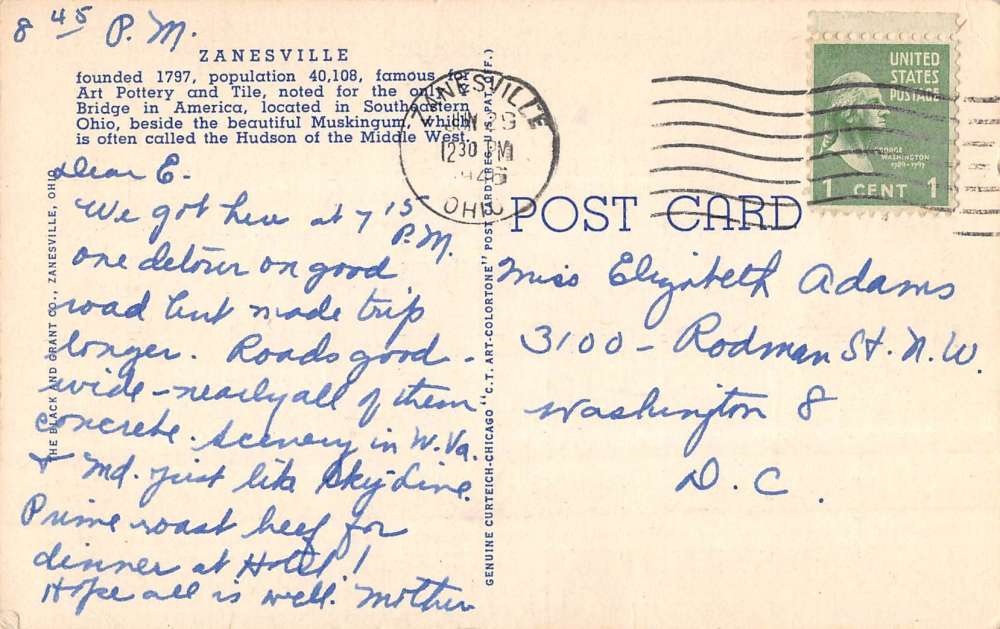 8 45 P.M.
ZANESVILLE
founded 1797, population 40,108, famous for
Art Pottery and Tile, noted for the only Y
Bridge in America, located in Southeastern
Ohio, beside the beautiful Muskingum, which
is often called the Hudson of the Middle West.
Dear E.
We got here at 7 15
P.M.
one detour on good
road but made trip
longer. Roads good -
wide - nearly all of them
concrete. Scenery in W. Va.
& Md. just like Skyline.
Prime roast beef for
dinner at Hotel!
Hope all is well. Mother
THE BLACK AND GRANT CO., ZANESVILLE, OHIO
GENUINE CURTEICH-CHICAGO "C.T. ART-COLORTONE" POST CARD (REG. U.S. PAT. OFF.)
ZANESVILLE
JUN 29
1230 PM
1946
OHIO
UNITED
STATES
POSTAGE
GEORGE
WASHINGTON
1789-1797
1 CENT 1
POST CARD
Miss Elizabeth Adams
3100 - Rodman St. N.W.
Washington 8
D.C.